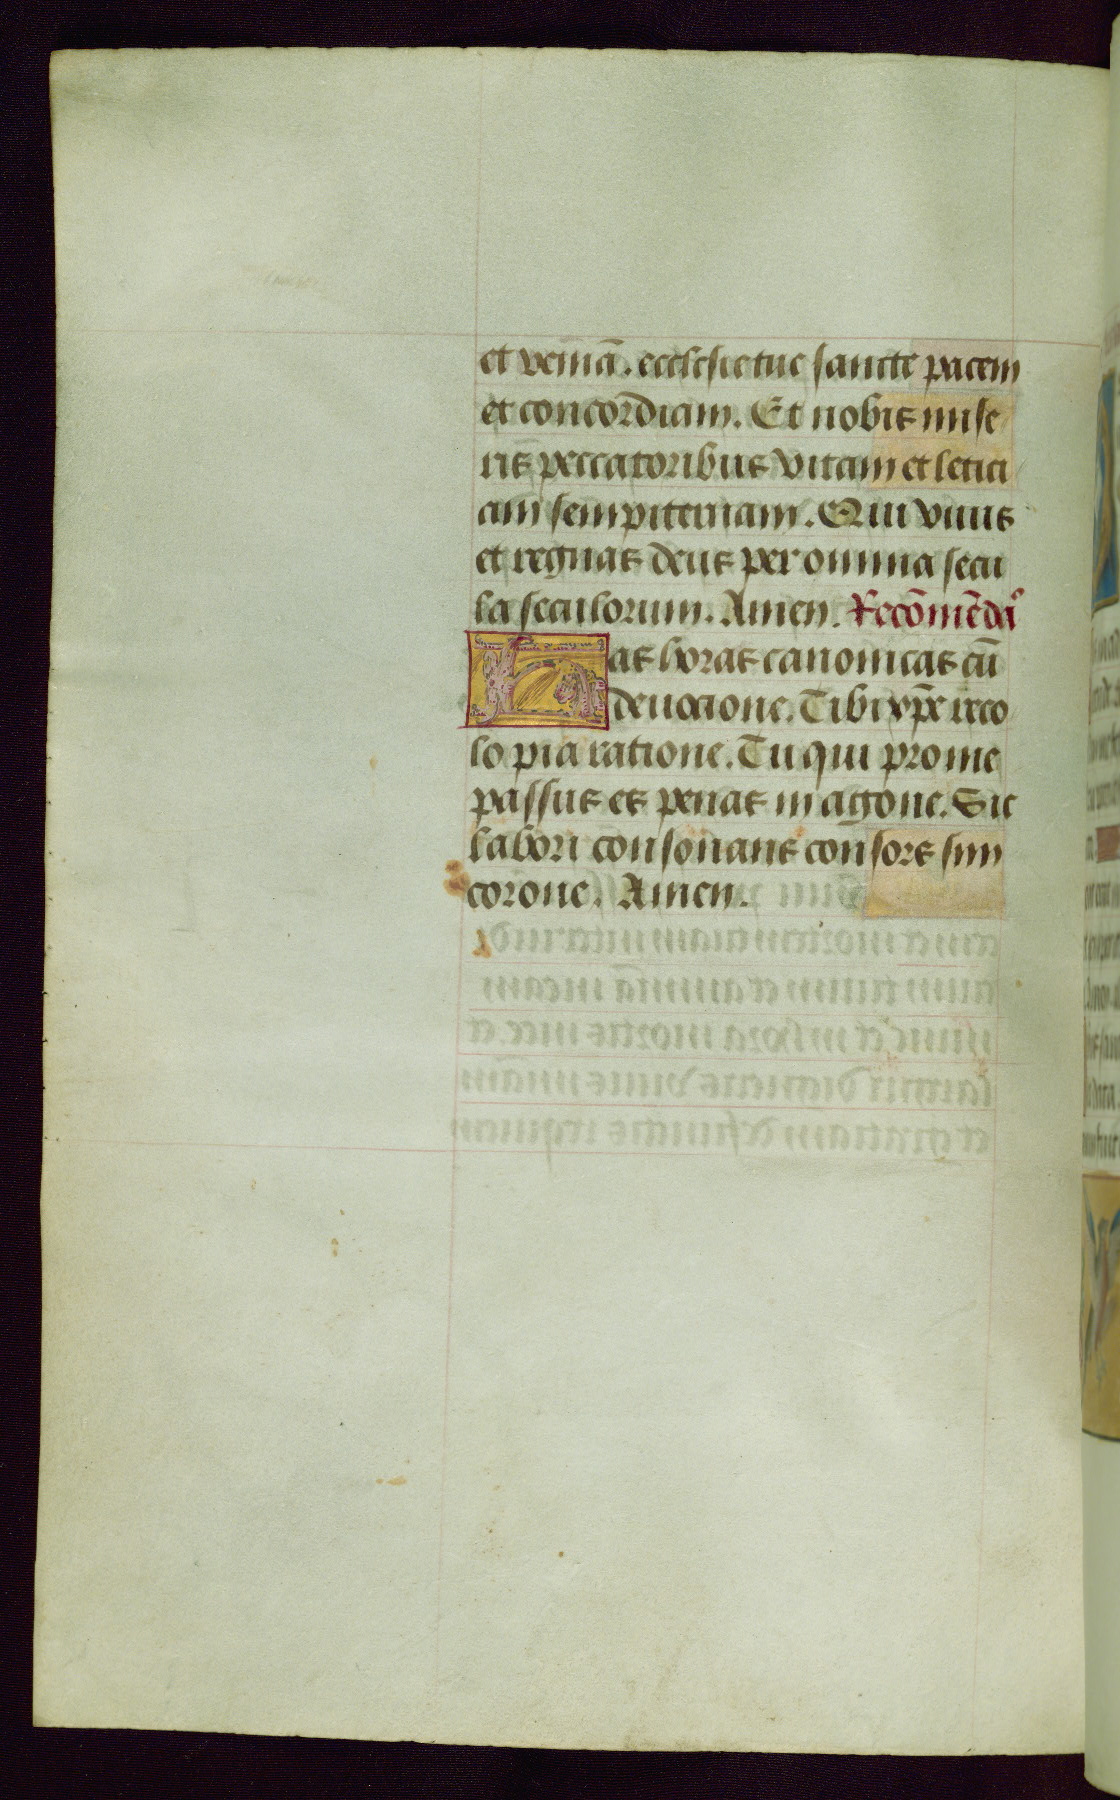 et veniā. ecclesie tue sancte pacem
et concordiam. Et nobis mise
ris peccatoribus vitam et letici
am sempiternam. Qui viuis
et regnas deus per omnia secu
la seculorum. Amen. Recōmēdaº
Has horas canonicas cū
deuocione. Tibi xp̄e reco
lo pia ratione. Tu qui pro me
passus es penas in agone. Sic
labori consonans consors sim
corone. Amen.